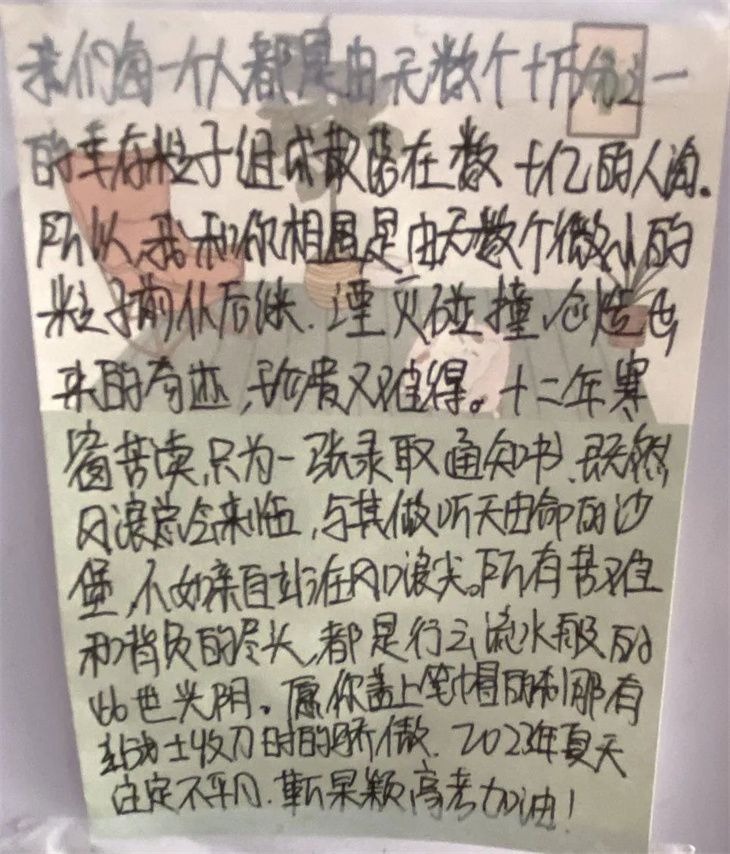 我们每一个人都是由无数个十万分之一
的幸存粒子组成散落在数十亿的人海。
所以,我和你相遇是由无数个微小的
粒子前仆后继.湮灭碰撞、创造出
来的奇迹,珍贵又难得。十二年寒
窗苦读,只为一张录取通知书.既然
风浪总会来临,与其做听天由命的沙
堡,不如亲自站在风口浪尖。所有苦难
和背负的尽头,都是行云流水般的
此世光阴。愿你盖上笔帽的刹那有
战士收刀时的骄傲.2023年夏天
注定不平凡.靳果颖高考加油!